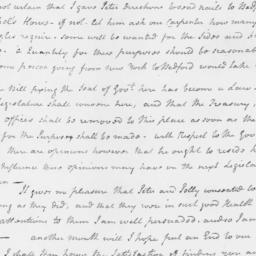 not certain that I gave Peter directions
House – if not – let him ask our Carpenter how many
require – some will be wanted for the sides and
a Quantity for these purposes should be
some person going from New York to Bedford would take
Bill fixing the Seat of Govt. here has become a Law
Legislature shall convene here, and that the Treasury,
offices shall be removed to this place as soon as
for the Purpose shall be made – with Respect to the Gov
there are opinions however that he ought to reside
Influence those opinions may have on the next
It gives me pleasure that Peter and Polly consented to
as they did; and that they were in such good Health
attentions to them I am well persuaded, and so I am
another month will I hope put an End to our
I shall then have the Satisfaction of